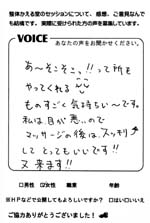 整体かえる堂のセッションについて、感想、ご意見なんで
も結構です。実際に受けられた方の声を募集しています。
VOICE
あなたの声をお聞かせください。
あ〜そこそこっ!!って所も
やってくれる
ものすごく気持ちい〜です。
私は、目が悪いので
マッサージの後は、スッキリ
して とってもいいです!!
又 来ます!!
□男性 □女性 職業 年齢
※HPなどで公開してもよろしいですか? □はい□いいえ
ご協力ありがとうございました!